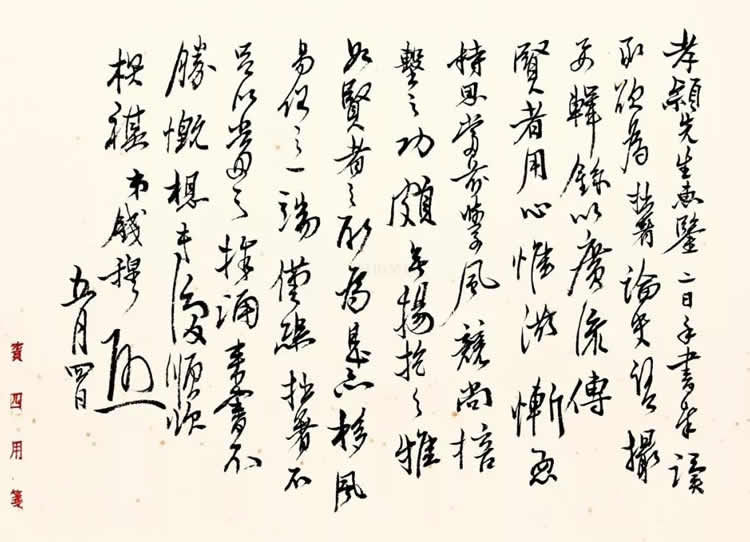 孝穎先生惠鑒二日手書奉讀
承欲為拙著論史語撮
要輯錄以廣流傳
賢者用心惟深慚恧
特思當前學風競尚掊
擊之功頗無揚扢之雅
如賢者之所為是亦移風
易俗之一端僅拙著不
足以當之捧誦來書不
勝慨想專復順頌
祺弟錢穆啟
五月四日
賓四用箋